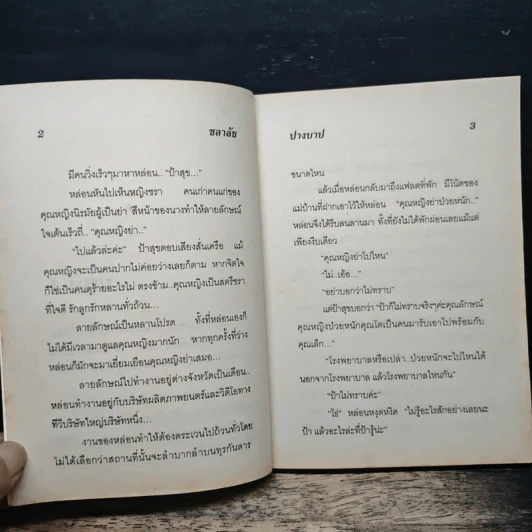 2 ชลาลัย
มีคนวิ่งเร็วๆมาหาหล่อน.. "ป้าสุข..."
หล่อนหันไปเห็นหญิงชรา คนเก่าคนแก่ของ
คุณหญิงนิรมัยผู้เป็นย่า สีหน้าของนางทำให้ลายลักษณ์
ใจเต้นเร็วถี่.. "คุณหญิงย่า.."
"ไปแล้วล่ะค่ะ" ป้าสุขตอบเสียงสั่นเครือ แม้
คุณหญิงจะเป็นคนปากไม่ค่อยว่างเลยก็ตาม หากจิตใจ
ก็ใช่เป็นคนดุร้ายอะไรไม่ ตรงข้าม..คุณหญิงเป็นสตรีชรา
ที่ใจดี รักลูกรักหลานทั่วถ้วน...
ลายลักษณ์เป็นหลานโปรด ทั้งที่หล่อนเองก็
ไม่ได้มีเวลามาดูแลคุณหญิงมากนัก หากทุกครั้งที่ว่าง
หล่อนก็มักจะมาเยี่ยมเยือนคุณหญิงย่าเสมอ...
ลายลักษณ์ไปทำงานอยู่ต่างจังหวัดเป็นเดือน..
หล่อนทำงานอยู่กับบริษัทผลิตภาพยนตร์และวิดีโอทาง
ทีวีบริษัทใหญ่บริษัทหนึ่ง...
งานของหล่อนทำให้ต้องตระเวนไปถ้วนทั่วโดย
ไม่ได้เลือกว่าสถานที่นั้นจะลำบากลำบนทุรกันดาร
ปางบาป 3
ขนาดไหน
แล้วเมื่อหล่อนกลับมาถึงแฟลตที่พัก มีโน้ตของ
แม่บ้านที่ฝากเอาไว้ให้หล่อน "คุณหญิงย่าป่วยหนัก.."
หล่อนจึงได้รีบลนลานมา ทั้งที่ยังไม่ได้พักผ่อนเลยแม้แต่
เพียงงีบเดียว
"คุณหญิงย่าไปไหน"
"ไม่..เอ้อ..."
"อย่าบอกว่าไม่ทราบ"
แต่ป้าสุขบอกว่า "ป้าก็ไม่ทราบจริงๆค่ะคุณลักษณ์
คุณหญิงป่วยหนักคุณโตเป็นคนมารับเอาไปพร้อมกับ
คุณเล็ก..."
"โรงพยาบาลหรือเปล่า..ป่วยหนักจะไปไหนได้
นอกจากโรงพยาบาล แล้วโรงพยาบาลไหนกัน"
"ป้าไม่ทราบค่ะ"
"โธ่" หล่อนหงุดหงิด "ไม่รู้อะไรสักอย่างเลยนะ
ป้า แล้วอะไรล่ะที่ป้ารู้น่ะ"